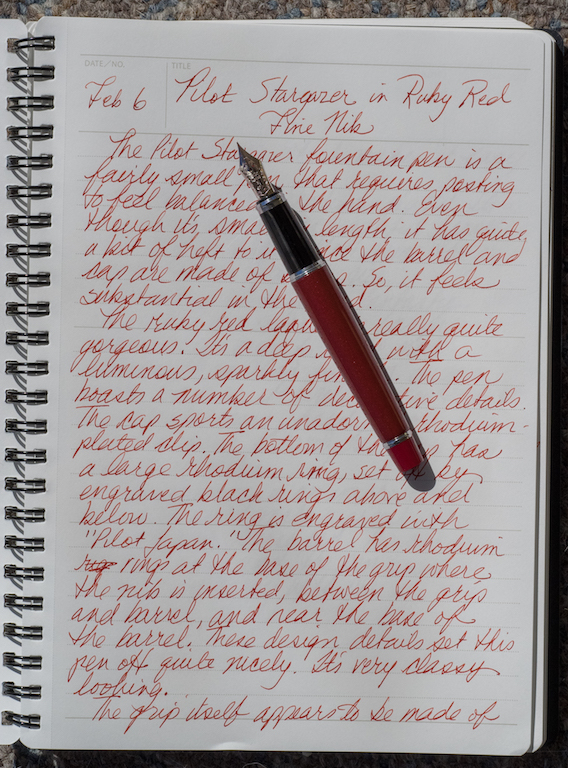 DATE/NO.
TITLE
Feb 6
Pilot Stargazer in Ruby Red
Fine Nib
The Pilot Stargazer fountain pen is a
fairly small that requires posting
to feel balanced the hand. Even
though it's small length, it has quite
a bit of heft to it the barrel and
cap are made of So, it feels
substantial in the
The ruby red really quite
gorgeous. It's a deep with a
luminous, sparkly The pen
boasts a number of decorative details.
The cap sports an unadorned rhodium-
plated clip. The bottom of the has
a large rhodium ring, set by
engraved black rings above and
below. The ring is engraved with
"Pilot Japan." The barrel has rhodium
rings at the base of the grip where
the nib is inserted, between the grip
and barrel, and near the base of
the barrel. These design details set this
pen off quite nicely. It's very classy
looking.
The grip itself appears to be made of